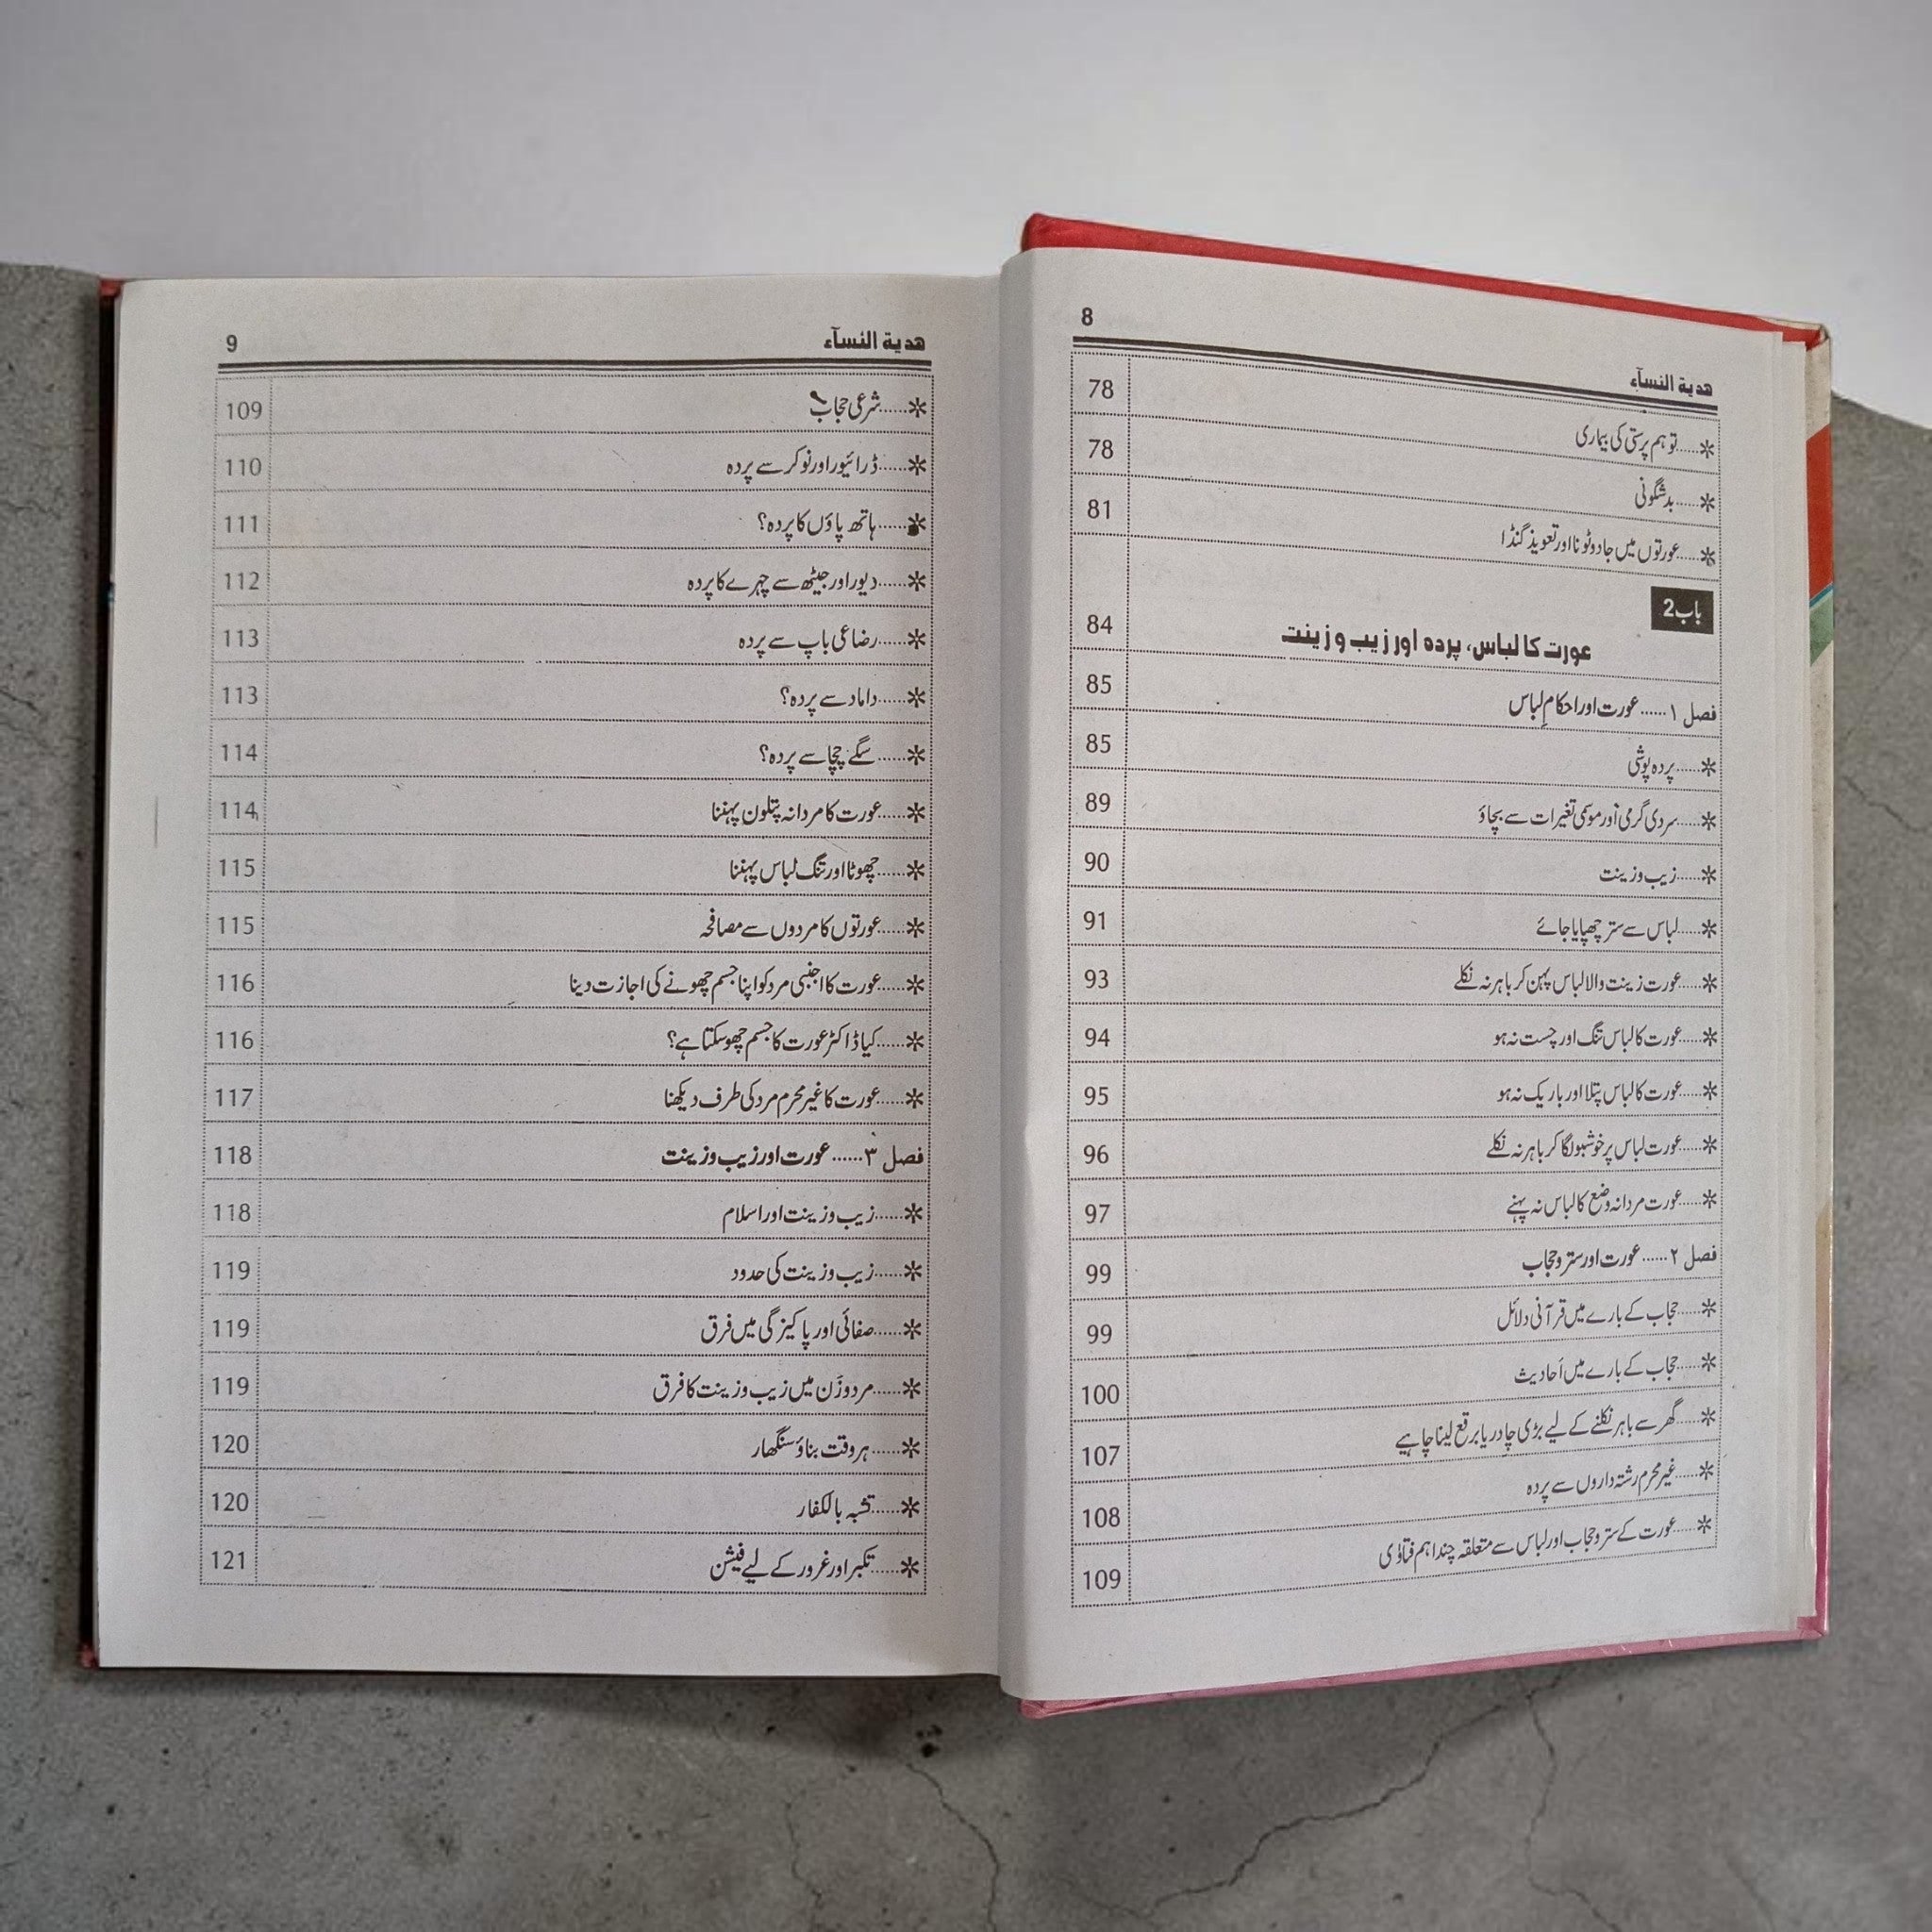 8
هدية النسآء
*.....توہم پرستی کی بیماری 78
*.....بدشگونی 78
*.....عورتوں میں جادو ٹونا اور تعویذ گنڈا 81
باب 2
عورت کا لباس، پردہ اور زیب و زینت 84
فصل ۱......عورت اور احکامِ لباس 85
*.....پردہ پوشی 85
*.....سردی گرمی اور موسمی تغیرات سے بچاؤ 89
*.....زیب و زینت 90
*.....لباس سے ستر چھپایا جائے 91
*.....عورت زینت والا لباس پہن کر باہر نہ نکلے 93
*.....عورت کا لباس تنگ اور چست نہ ہو 94
*.....عورت کا لباس پتلا اور باریک نہ ہو 95
*.....عورت لباس پر خوشبو لگا کر باہر نہ نکلے 96
*.....عورت مردانہ وضع کا لباس نہ پہنے 97
فصل ۲......عورت اور ستر و حجاب 99
*.....حجاب کے بارے میں قرآنی دلائل 99
*.....حجاب کے بارے میں اَحادیث 100
*.....گھر سے باہر نکلنے کے لیے بڑی چادر یا برقع لینا چاہیے 107
*.....غیر محرم رشتہ داروں سے پردہ 108
*.....عورت کے ستر و حجاب اور لباس سے متعلقہ چند اہم فتاوٰی 109
هدية النسآء 9
*......شرعی حجاب 109
*......ڈرائیور اور نوکر سے پردہ 110
*......ہاتھ پاؤں کا پردہ؟ 111
*......دیور اور جیٹھ سے چہرے کا پردہ 112
*......رضاعی باپ سے پردہ 113
*......داماد سے پردہ؟ 113
*......سگے چچا سے پردہ؟ 114
*......عورت کا مردانہ پتلون پہننا 114
*......چھوٹا اور تنگ لباس پہننا 115
*......عورتوں کا مردوں سے مصافحہ 115
*......عورت کا اجنبی مرد کو اپنا جسم چھونے کی اجازت دینا 116
*......کیا ڈاکٹر عورت کا جسم چھو سکتا ہے؟ 116
*......عورت کا غیر محرم مرد کی طرف دیکھنا 117
فصل ۳......عورت اور زیب و زینت 118
*......زیب و زینت اور اسلام 118
*......زیب و زینت کی حدود 119
*......صفائی اور پاکیزگی میں فرق 119
*......مرد و زَن میں زیب و زینت کا فرق 119
*......ہر وقت بناؤ سنگھار 120
*......تشبہ بالکفار 120
*......تکبر اور غرور کے لیے فیشن 121